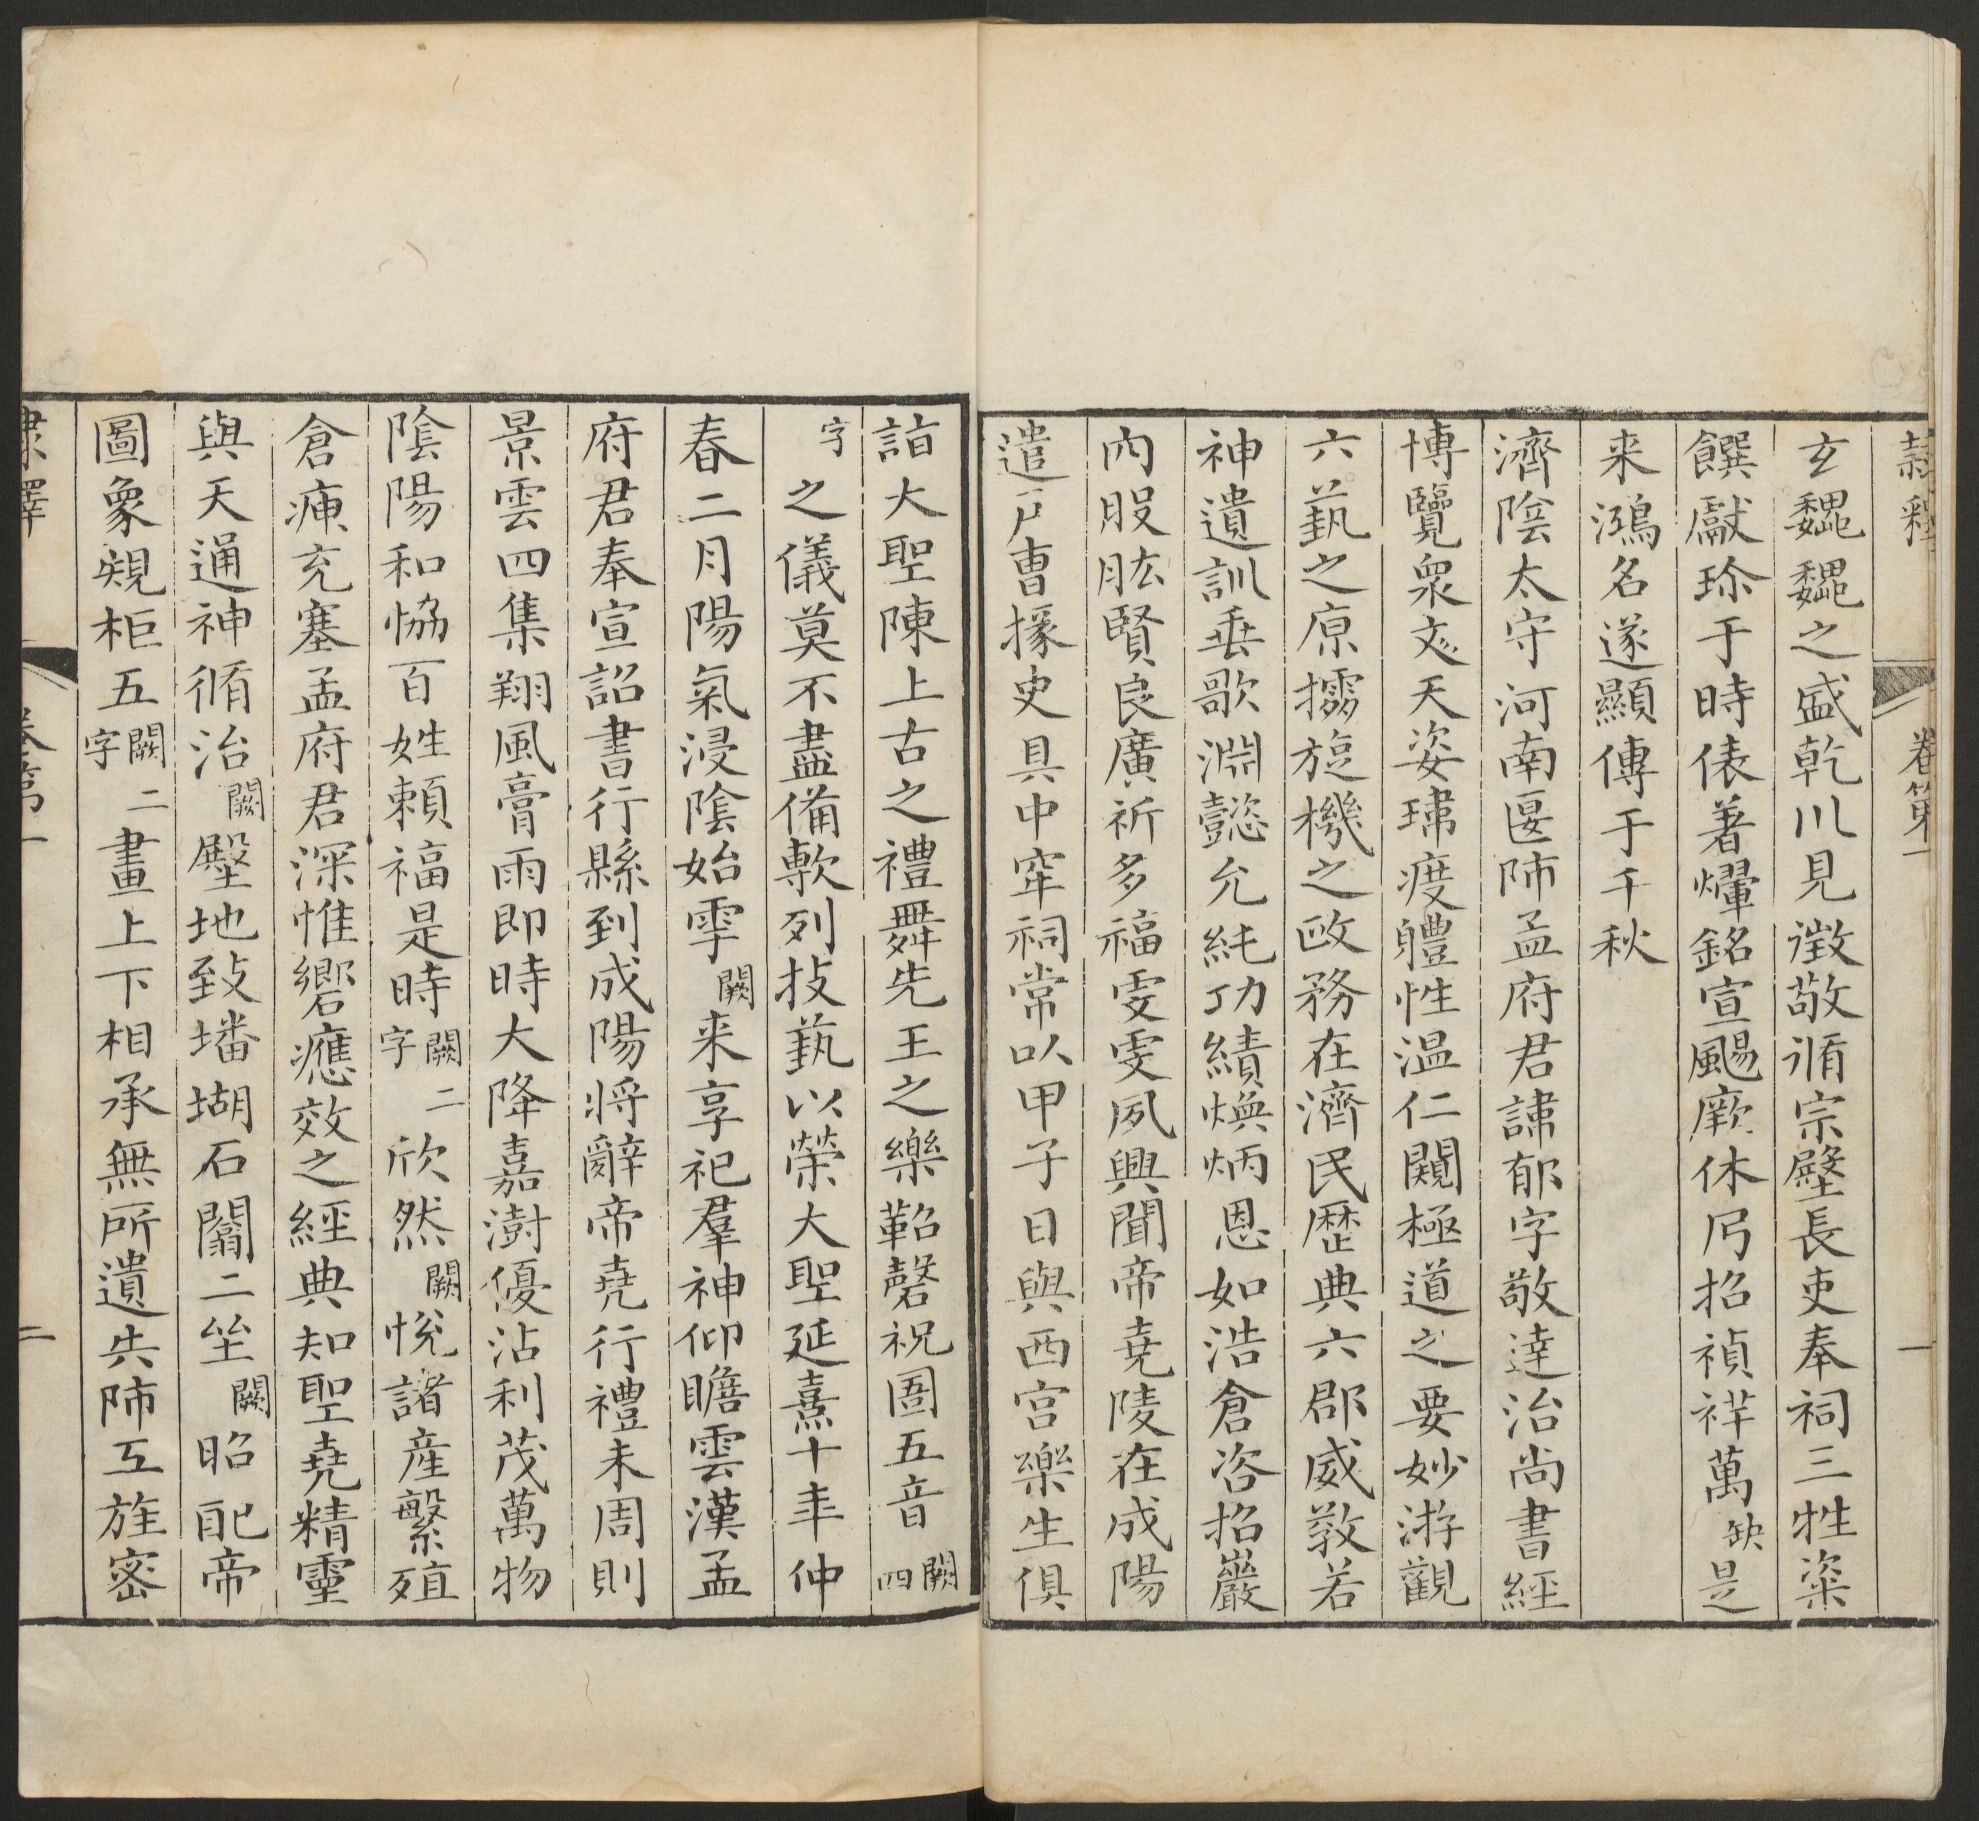 隸釋 卷第一 一
玄巍巍之盛乾川見徵敬循宗壂長吏奉祠三牲粢
饌獻珎于時俵著爗銘宣颺厥休乃招禎祥萬缺是
来鴻名遂顯傳于千秋
濟陰太守河南匽師孟府君諱郁字敬達治尚書經
博覽衆文天姿瑋度軆性温仁闚極道之要妙游觀
六蓺之原㩙旋機之政務在濟民歴典六郡威教若
神遺訓垂歌淵懿允純功績煥炳恩如浩倉咨招巖
内股肱賢良廣祈多福雯雯夙興聞帝堯陵在成陽
遣戶曹掾史具中牢祠常以甲子日與西宮樂生俱
詣大聖陳上古之禮舞先王之樂鞀磬祝圄五音闕四
字之儀莫不盡備歑列技蓺以榮大聖延熹十年仲
春二月陽氣浸陰始雩闕来享祀羣神仰瞻雲漢孟
府君奉宣詔書行縣到成陽將辭帝堯行禮未周則
景雲四集翔風膏雨即時大降嘉澍優沾利茂萬物
陰陽和恊百姓頼福是時闕二字欣然闕恱諸産繁殖
倉庾充塞孟府君深惟嚮應效之經典知聖堯精靈
與天通神循治闕壂地致墦堋石闟二坐闕昭配帝
圖象規柜五闕二字畫上下相承無所遺失師工旌密
隸釋 卷第一 二